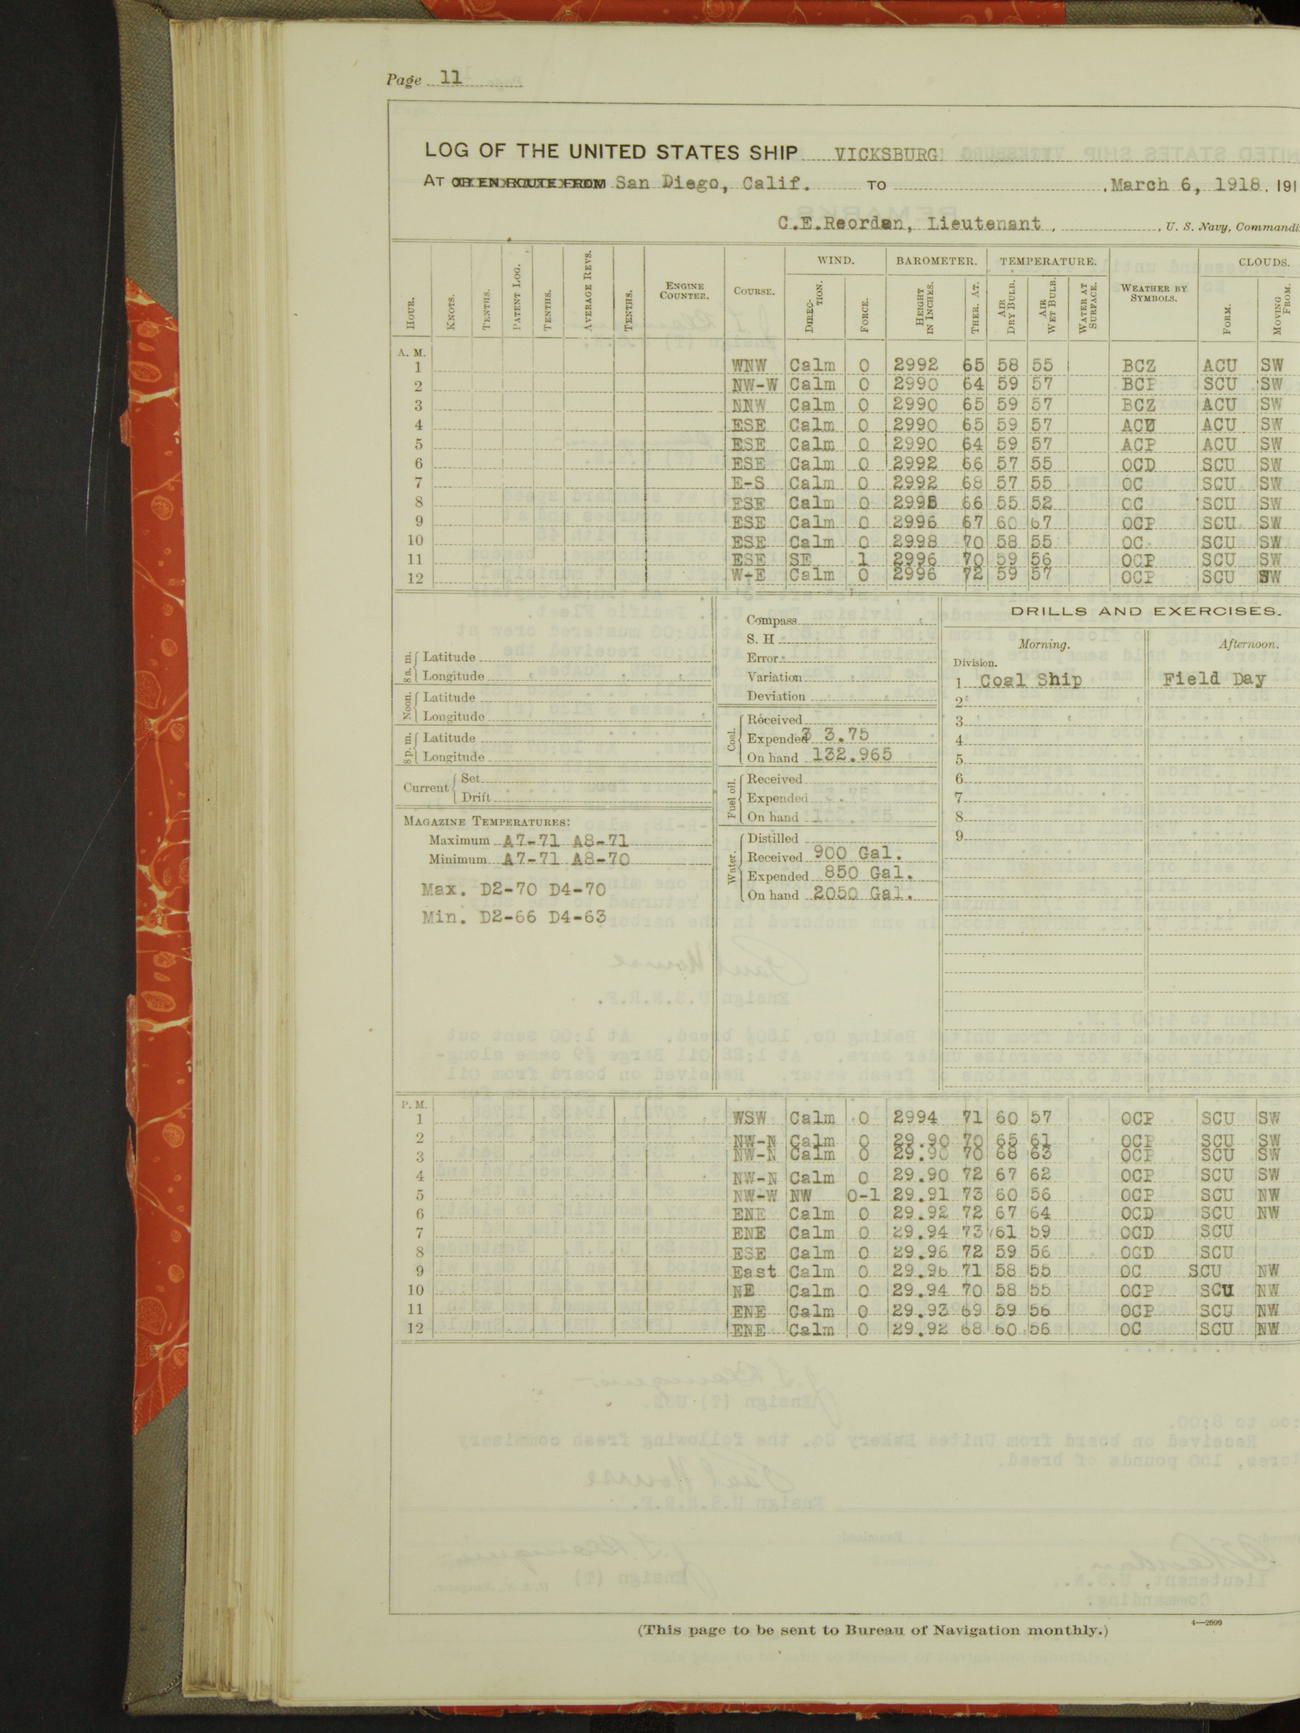 Page 11
LOG OF THE UNITED STATES SHIP VICKSBURG
AT OR EN ROUTE FROM San Diego, Calif. TO , March 6, 1918, 191
C.E.Reordan, Lieutenant , , U. S. Navy, Commandi
WIND. BAROMETER. TEMPERATURE. CLOUDS.
HOUR. KNOTS. TENTHS. PATENT LOG. TENTHS. AVERAGE REVS. TENTHS. ENGINE COUNTER. COURSE. DIREC-TION. FORCE. HEIGHT IN INCHES. THER. AT. AIR DRY BULB. AIR WET BULB. WATER AT SURFACE. WEATHER BY SYMBOLS. FORM. MOVING FROM.
A. M.
1 WNW Calm 0 2992 65 58 55 BCZ ACU SW
2 NW-W Calm 0 2990 64 59 57 BCP SCU SW
3 NNW Calm 0 2990 65 59 57 BCZ ACU SW
4 ESE Calm 0 2990 65 59 57 ACU SW
5 ESE Calm 0 2990 64 59 57 ACP ACU SW
6 ESE Calm 0 2992 66 57 55 OCD SCU SW
7 E-S Calm 0 2992 68 57 55 OC SCU SW
8 ESE Calm 0 66 55 52 OC SCU SW
9 ESE Calm 0 2996 67 60 57 OCP SCU SW
10 ESE Calm 0 2998 70 58 55 OC SCU SW
11 ESE SE 1 2996 70 59 56 OCP SCU SW
12 W-E Calm 0 2996 72 59 57 OCP SCU SW
8 a. m. Latitude
Longitude
Noon. Latitude
Longitude
8 p. m. Latitude
Longitude
Current Set
Drift
MAGAZINE TEMPERATURES:
Maximum A7-71 A8-71
Minimum A7-71 A8-70
Max. D2-70 D4-70
Min. D2-66 D4-63
Compass
S. H
Error
Variation
Deviation
Coal. Received
Expended 3 3.75
On hand 132.965
Fuel oil. Received
Expended
On hand
Water. Distilled
Received 900 Gal.
Expended 850 Gal.
On hand 2050 Gal.
DRILLS AND EXERCISES.
Morning. Afternoon.
Division.
1 Coal Ship Field Day
2
3
4
5
6
7
8
9
P. M.
1 WSW Calm 0 2994 71 60 57 OCP SCU SW
2 NW-N Calm 0 29.90 70 65 61 OCP SCU SW
3 NW-N Calm 0 29.90 70 68 63 OCP SCU SW
4 NW-N Calm 0 29.90 72 67 62 OCP SCU SW
5 NW-W NW 0-1 29.91 73 60 56 OCP SCU NW
6 ENE Calm 0 29.92 72 67 64 OCD SCU NW
7 ENE Calm 0 29.94 73 61 59 OCD SCU
8 ESE Calm 0 29.96 72 59 56 OCD SCU
9 East Calm 0 29.96 71 58 55 OC SCU NW
10 NE Calm 0 29.94 70 58 55 OCP SCU NW
11 ENE Calm 0 29.93 69 59 56 OCP SCU NW
12 ENE Calm 0 29.92 68 60 56 OC SCU NW
4—2699
(This page to be sent to Bureau of Navigation monthly.)